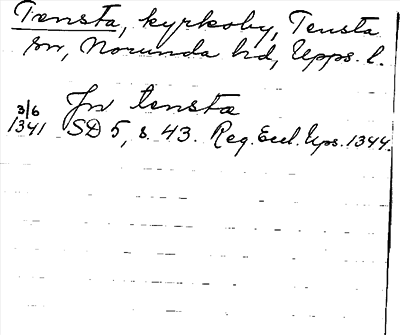 Tensta, kyrkoby, Tensta
sn, Norunda hd, Upps. l.
Jn tenstæ
3/6
1341 SD 5, s. 43. Reg. Eccl. Ups. 1344.